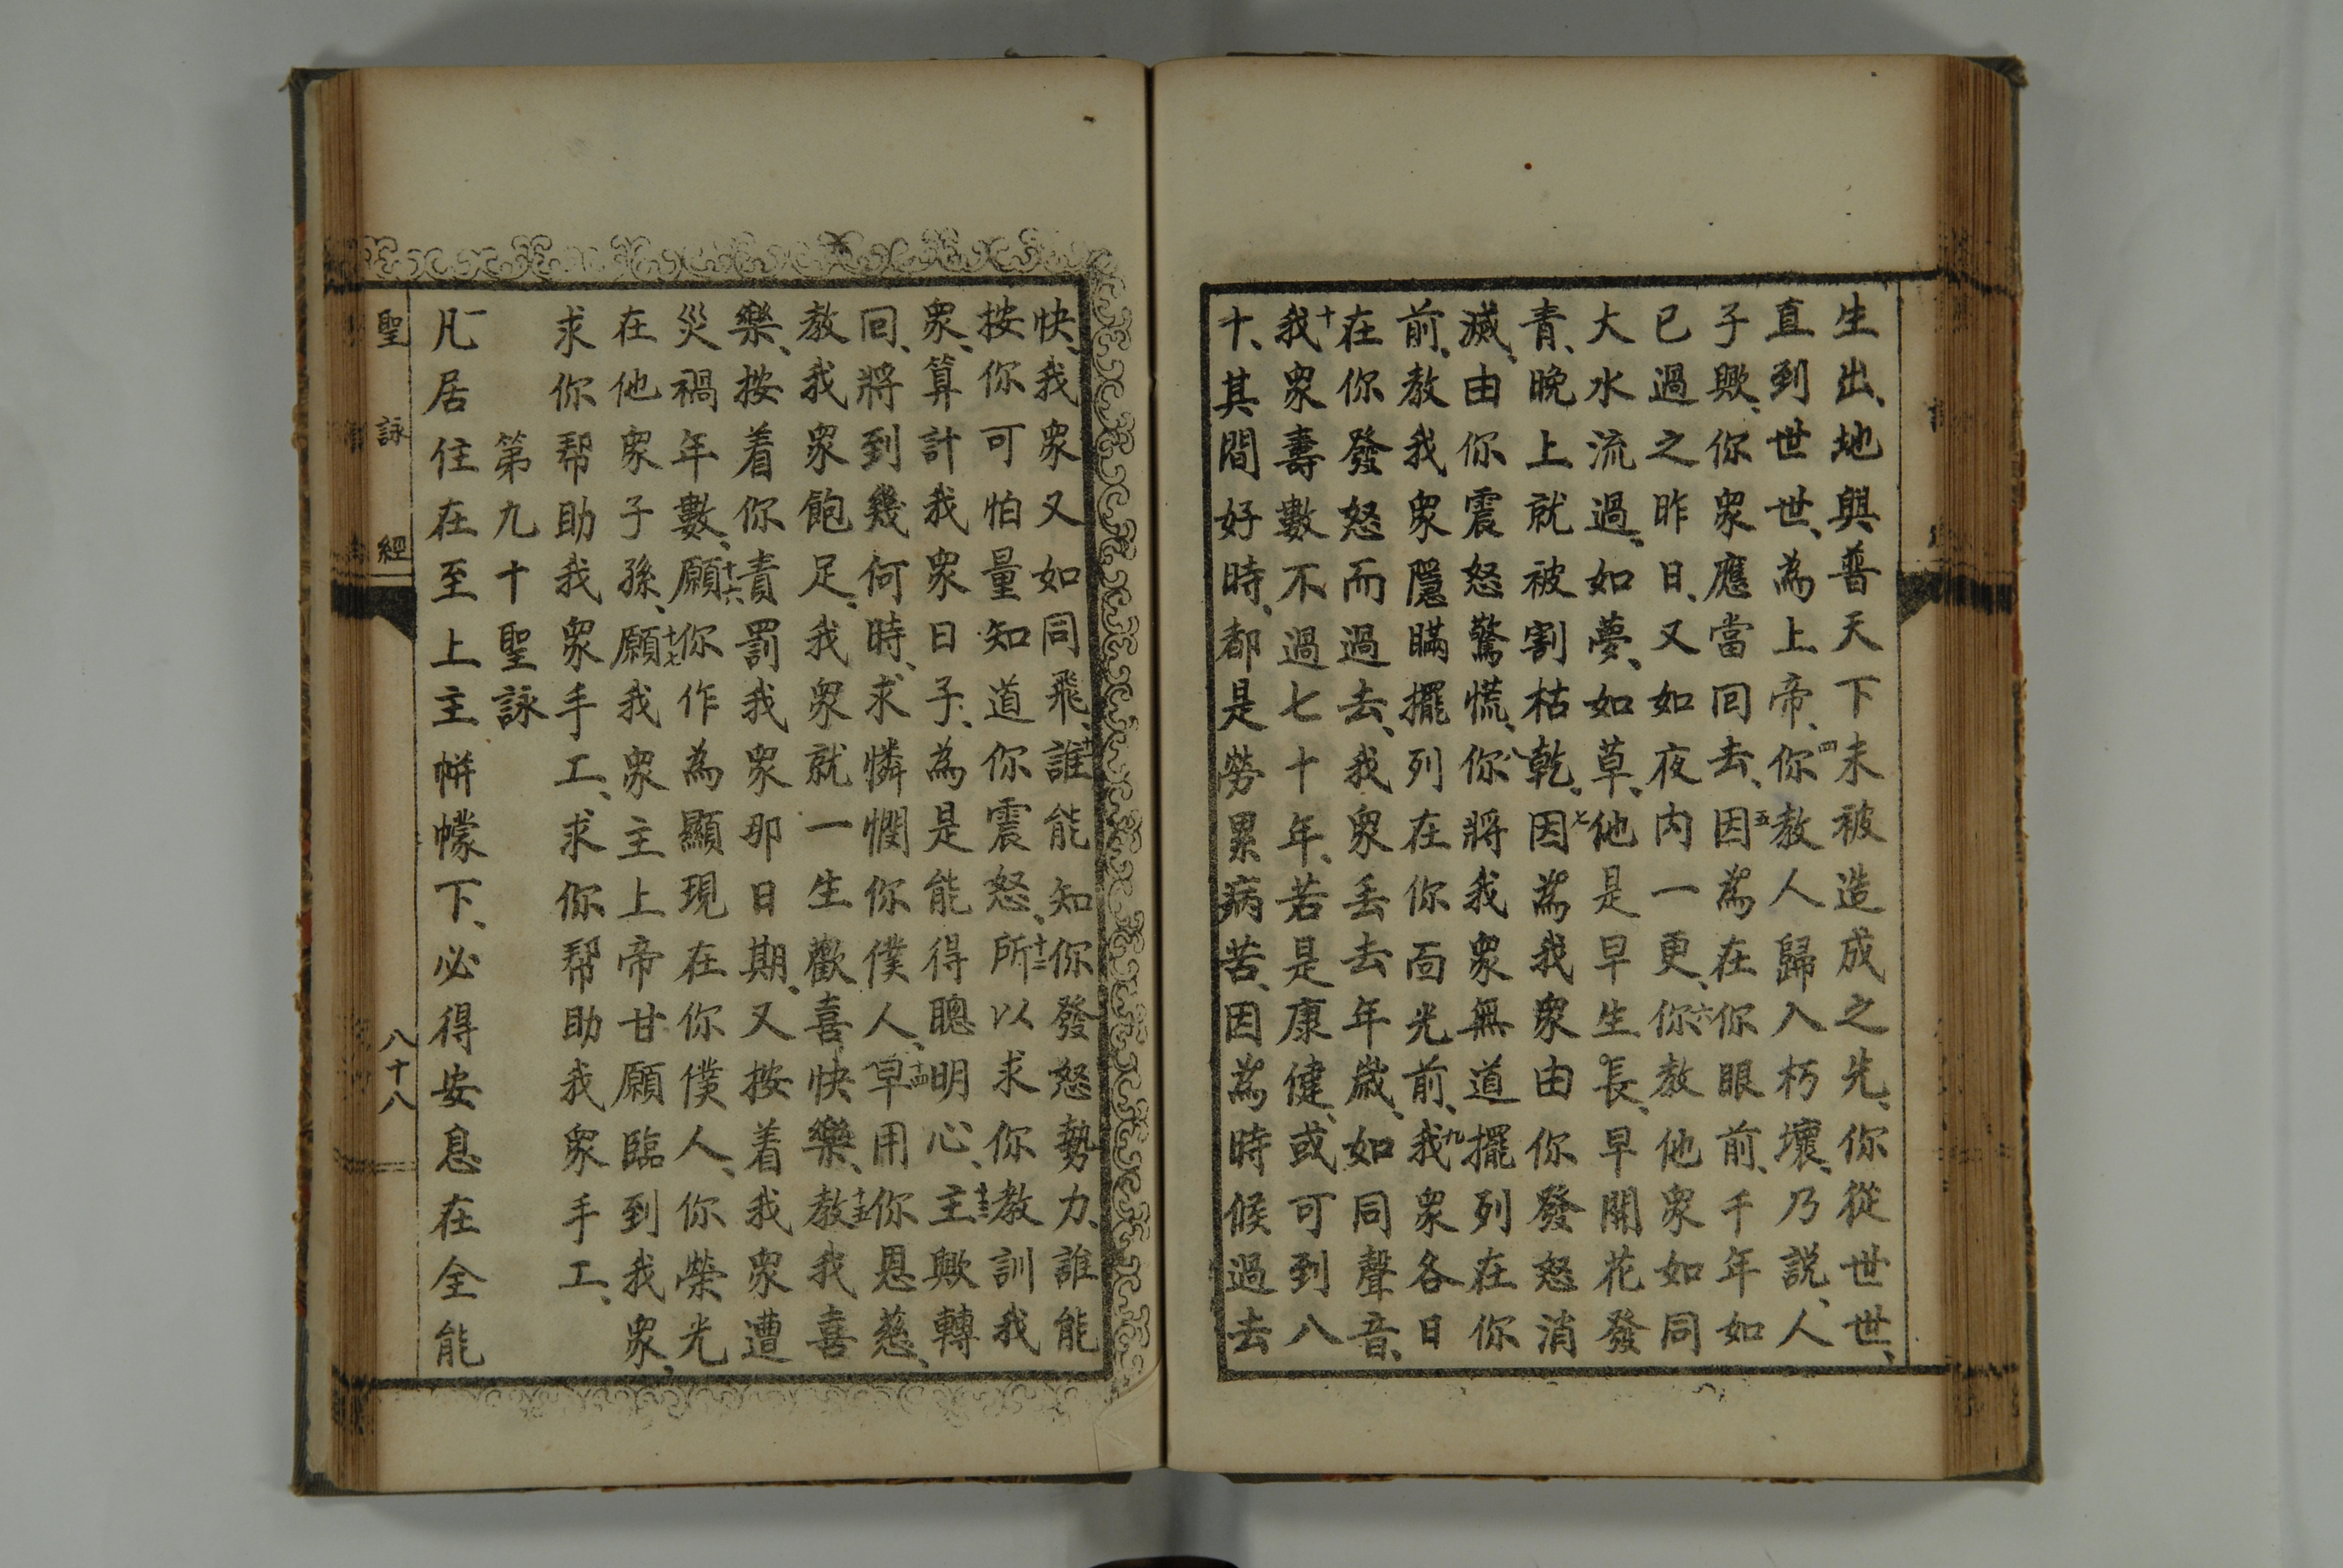 生出、地與普天下未被造成之先、你從世世、
直到世世、為上帝、四你教人歸入朽壞、乃説、人
子歟、你衆應當回去、五因為在你眼前、千年如
已過之昨日、又如夜內一更、六你教他衆如同
大水流過、如夢、如草、他是早生長、早開花發
青、晩上就被割枯乾、七因為我衆由你發怒消
滅、由你震怒驚慌、八你將我衆無道擺列在你
前、教我衆隱瞞擺列在你面光前、九我衆各日
在你發怒而過去、我衆丢去年歲、如同聲音、
十我衆壽數不過七十年、若是康健、或可到八
十、其間好時、都是勞累病苦、因為時候過去
快、我衆又如同飛、十一誰能知你發怒勢力、誰能
按你可怕量知道你震怒、十二所以求你教訓我
衆、算計我衆日子、為是能得聰明心、十三主歟轉
回、將到幾何時、求憐憫你僕人、十四早用你恩慈、
教我衆飽足、我衆就一生歡喜快樂、十五教我喜
樂、按着你責罰我衆那日期、又按着我衆遭
災禍年數、十六願你作為顯現在你僕人、你榮光
在他衆子孫、十七願我衆主上帝甘願臨到我衆、
求你帮助我衆手工、求你帮助我衆手工、
第九十聖詠
一凡居住在至上主帡幪下、必得安息在全能
聖詠經
八十八